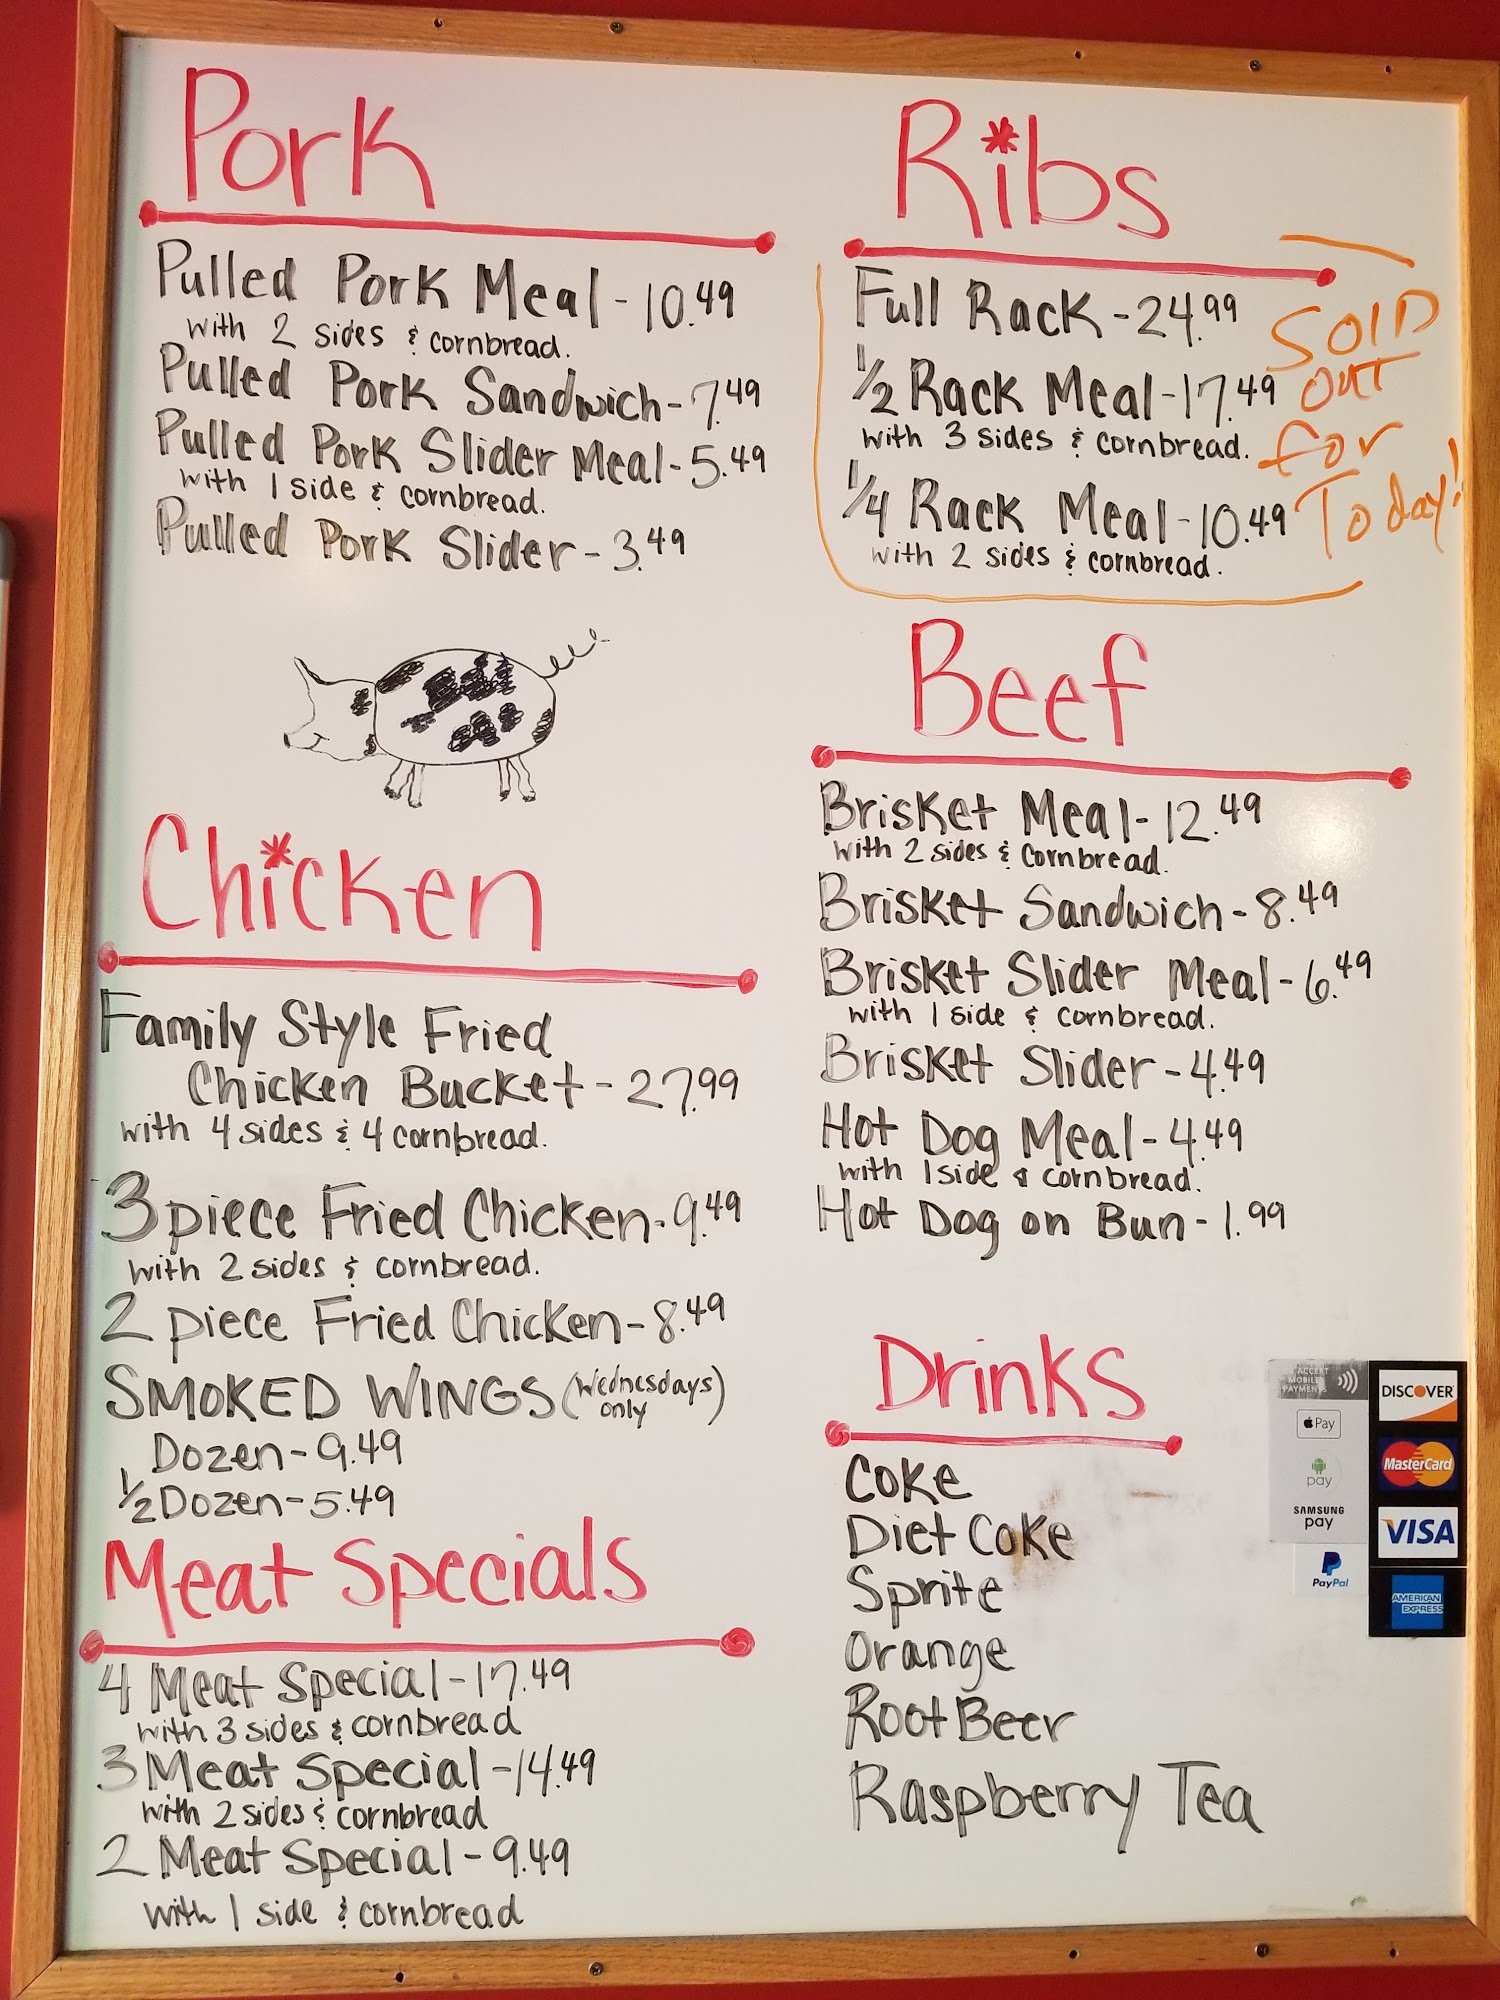 Pork
Pulled Pork Meal - 10.49
with 2 sides & cornbread.
Pulled Pork Sandwich - 7.49
Pulled Pork Slider Meal - 5.49
with 1 side & cornbread.
Pulled Pork Slider - 3.49
Chicken
Family Style Fried
Chicken Bucket - 27.99
with 4 sides & 4 cornbread.
3 piece Fried Chicken - 9.49
with 2 sides & cornbread.
2 piece Fried Chicken - 8.49
SMOKED WINGS (Wednesdays
only)
Dozen - 9.49
1/2 Dozen - 5.49
Meat Specials
4 Meat Special - 17.49
with 3 sides & cornbread
3 Meat Special - 14.49
with 2 sides & cornbread
2 Meat Special - 9.49
with 1 side & cornbread
Ribs
Full Rack - 24.99
1/2 Rack Meal - 17.49
with 3 sides & cornbread.
1/4 Rack Meal - 10.49
with 2 sides & cornbread.
SOLD
OUT
for
Today!
Beef
Brisket Meal - 12.49
with 2 sides & cornbread.
Brisket Sandwich - 8.49
Brisket Slider Meal - 6.49
with 1 side & cornbread.
Brisket Slider - 4.49
Hot Dog Meal - 4.49
with 1 side & cornbread.
Hot Dog on Bun - 1.99
Drinks
Coke
Diet Coke
Sprite
Orange
Root Beer
Raspberry Tea
ACCEPT
MOBILE
PAYMENTS
Pay
pay
SAMSUNG
pay
PayPal
DISCOVER
MasterCard
VISA
AMERICAN
EXPRESS